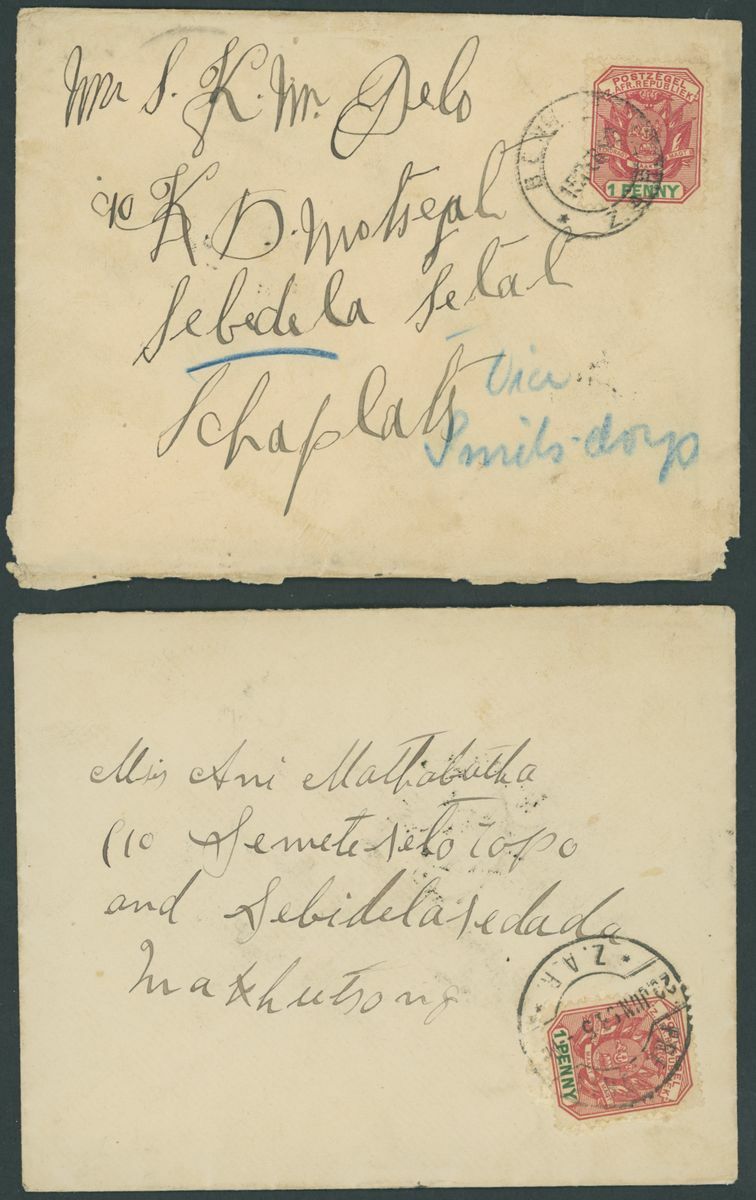 Mr S. K. M. Pelo
c/o K. D. Motsepat
Sebedela Setat
Schaplats
Via
Smits-dorp
POSTZEGEL
Z. AFR. REPUBLIEK
1 PENNY
Z.A.R.
Mis Ani Mathabatha
C/o Semete
and Sebidela
Makhutsong
Z.A.R.
23 JUN
POSTZEGEL
1 PENNY